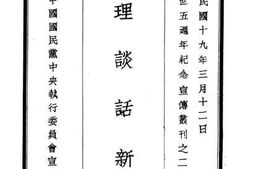 民國十九年三月十二日
世五週年紀念宣傳叢刊之二
理談話新
中國國民黨中央執行委員會宣